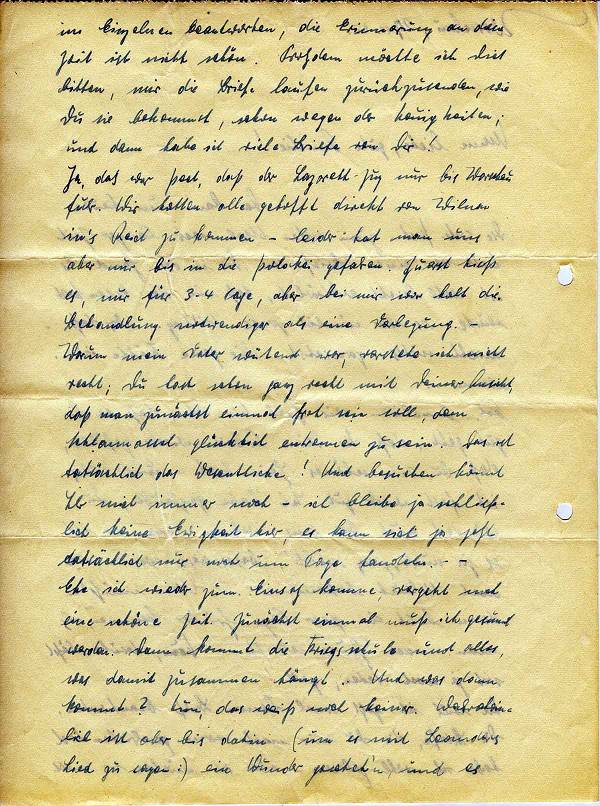 im Einzelnen beantworten, die Erinnerung an diese
Zeit ist nicht schön. Trotzdem möchte ich dich
bitten, mir die Briefe laufen zurückzusenden, wie
Du sie bekommst, schon wegen der
und dann habe ich viele Briefe von Dir.
Ja, das war Pech, daß der Lazarett-Zug nur bis Warschau
fuhr. Wir hatten alle gehofft direkt von Wilna
in's Reich zu kommen - leider hat man uns
aber nur bis in die Polackei gefahren. Zuerst hieß
es, nur für 3-4 Tage, aber bei mir war halt die
Behandlung notwendiger als eine Verlegung. -
Warum mein Vater wütend war, verstehe ich nicht
recht; Du hast schon ganz recht mit Deiner Ansicht,
daß man zunächst einmal froh sein soll, dem
Schlamassel glücklich entronnen zu sein. Das ist
tatsächlich das Wesentliche! Und besuchen könnt
Ihr mich immer noch - ich bleibe ja schließ-
lich keine Ewigkeit hier, es kann sich ja jetzt
tatsächlich nur noch um Tage handeln. - -
Ehe ich wieder zum Einsatz komme, vergeht noch
eine schöne Zeit. Zunächst einmal muß ich gesund
werden. Dann kommt die Kriegsschule und alles,
was damit zusammen hängt.. Und was dann
kommt? Tun, das weiß noch keiner. Wahrschein-
lich ist aber bis dahin (um es mit Leanders
Lied zu sagen:) ein Wunder gescheh'n und es